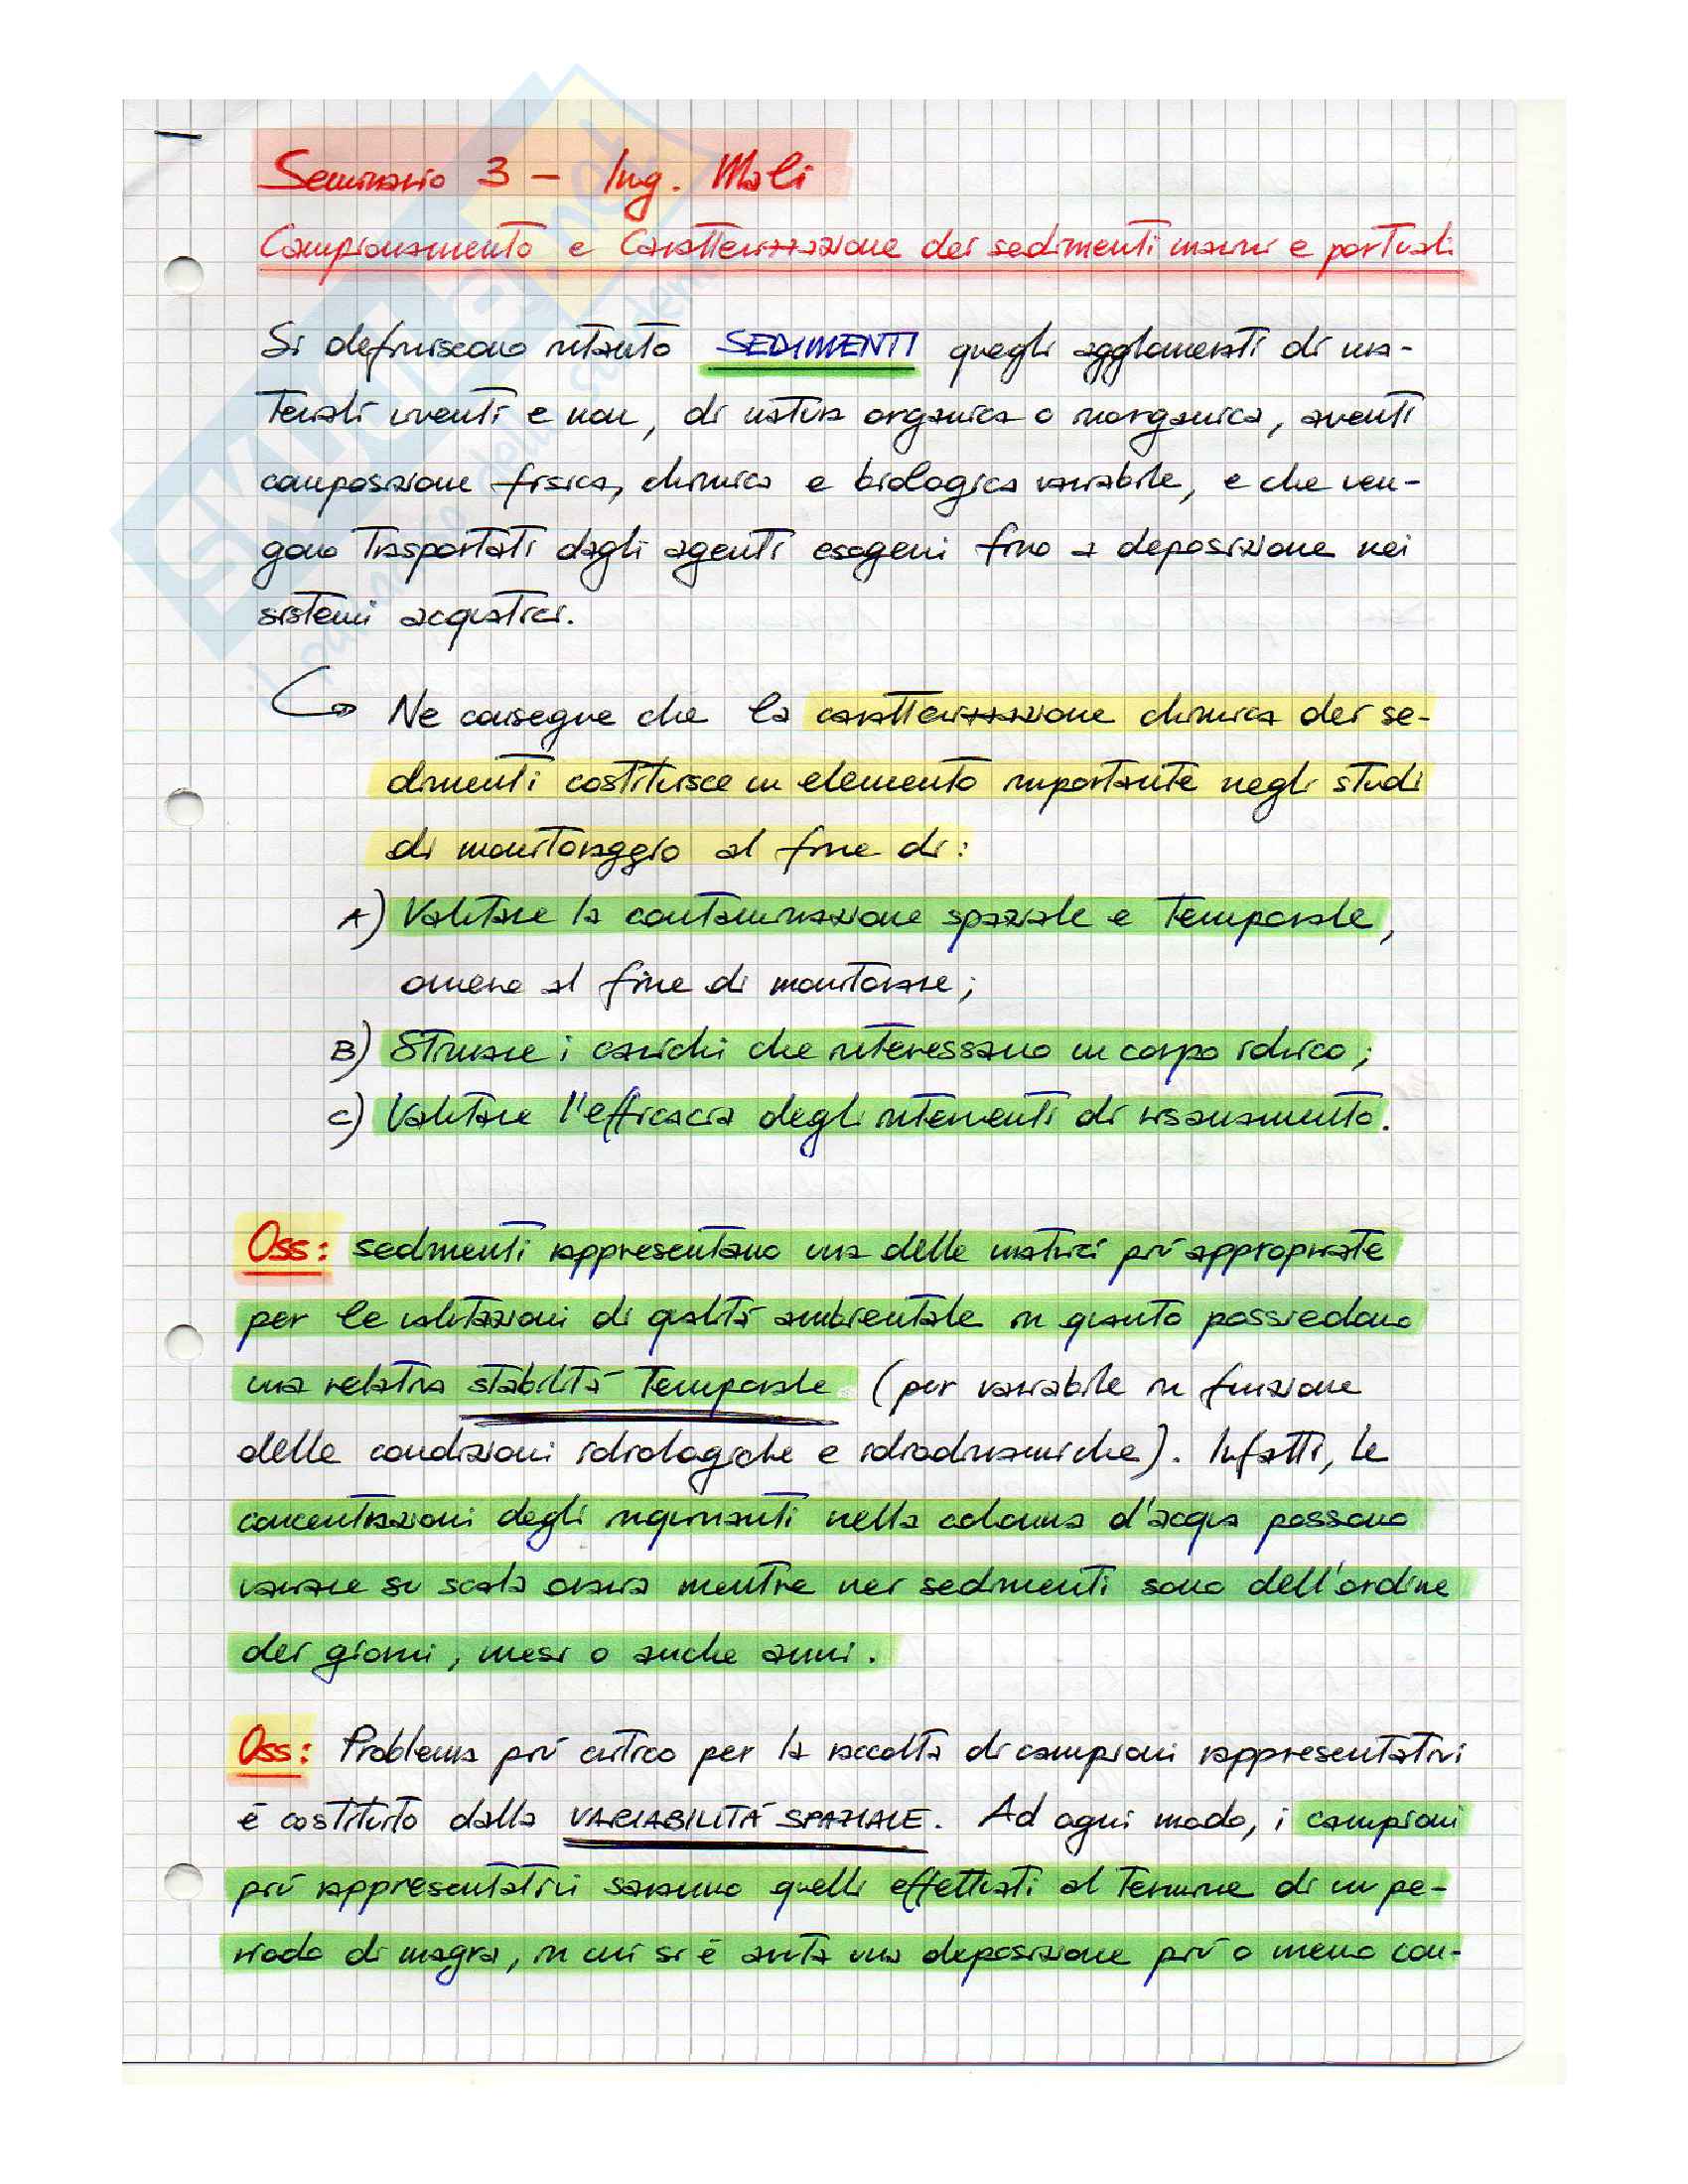 Seminario 3 - Ing. Mali
Campionamento e Caratterizzazione dei sedimenti marini e portuali
Si definiscono intanto SEDIMENTI quegli agglomerati di ma-
teriali viventi e non, di natura organica o inorganica, aventi
composizione fisica, chimica e biologica variabile, e che ven-
gono trasportati dagli agenti esogeni fino a deposizione nei
sistemi acquatici.
Ne consegue che la caratterizzazione chimica dei se-
dimenti costituisce un elemento importante negli studi
di monitoraggio al fine di:
A) Valutare la contaminazione spaziale e temporale,
ovvero al fine di monitorare;
B) Stimare i carichi che interessano un corpo idrico;
C) Valutare l'efficacia degli interventi di risanamento.
Oss: sedimenti rappresentano una delle matrici più appropriate
per le valutazioni di qualità ambientale in quanto possiedono
una relativa stabilità temporale (pur variabile in funzione
delle condizioni idrologiche e idrodinamiche). Infatti, le
concentrazioni degli inquinanti nella colonna d'acqua possono
variare su scala oraria mentre nei sedimenti sono dell'ordine
dei giorni, mesi o anche anni.
Oss: Problema più critico per la raccolta di campioni rappresentativi
è costituito dalla VARIABILITÀ SPAZIALE. Ad ogni modo, i campioni
più rappresentativi saranno quelli effettuati al termine di un pe-
riodo di magra, in cui si è avuta una deposizione più o meno con-